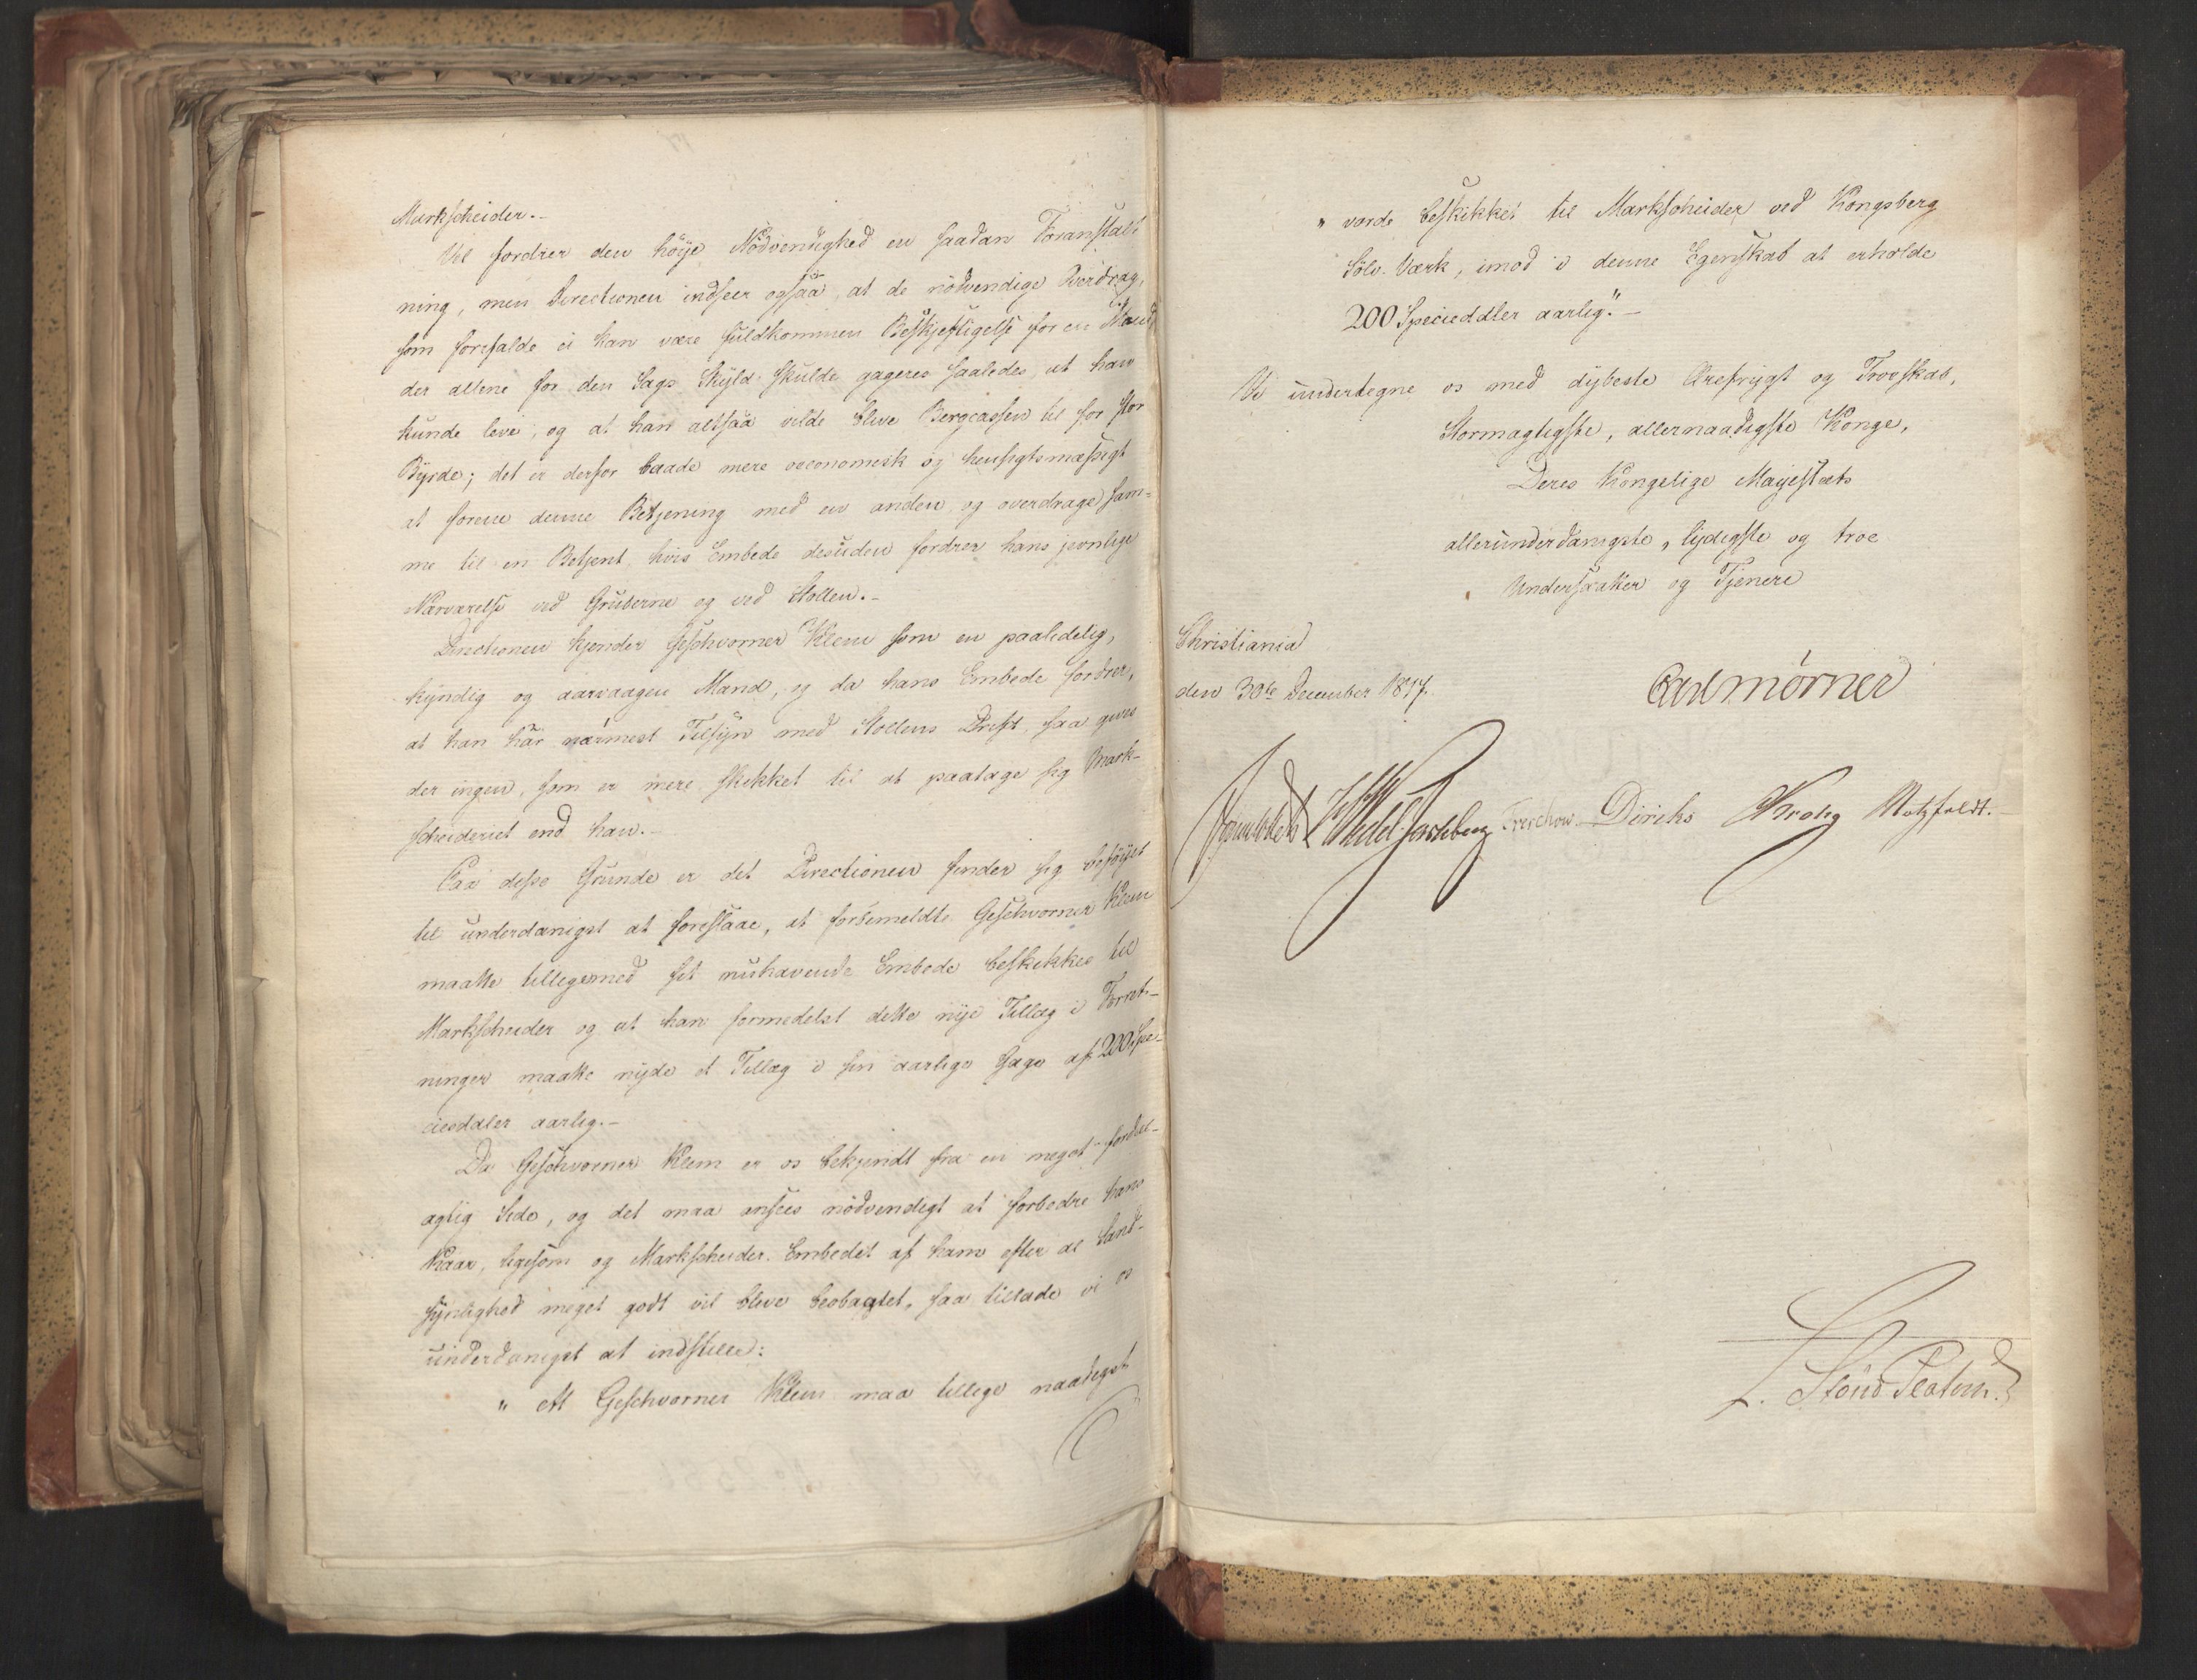 Markscheider.-
Vel fordrer den høye Nødvendighed en saadan Foranstalt
ning, men Directionen indseer ogsaa, at de nødvendige Overdrag,
som forefalde ei kan være fuldkommen Beskjeftigelse for en Mand
der allene for den Sags Skyld skulde gageres saaledes at han
kunde leve, og at han altsaa vilde blive Bergcassen til for stor
Byrde; det er derfor baade mere oeconomisk og hensigtsmæssigt
at forene denne Betjening med en anden og overdrage sam=
me til en Betjent, hvis Embede desuden fordrer hans jevnlige
Nærværelse ved Gruberne og ved Stollen.-
Directionen kjender Geschvorner Klem som en paalidelig,
kyndig og aarvaagen Mand, og da hans Embede fordrer,
at han har nærmest Tilsyn med Stollens Drift, saa gives
der ingen, som er mere skikket til at paatage sig Mark-
scheideriet end han.-
Paa disse Grunde er det Directionen finder sig beføyet
til underdanigst at foreslaae, at forbemeldte Geschvorner Klem
maatte tilligemed sit nuhavende Embede beskikkes til
Markscheider og at han formedelst dette nye Tillæg i Forret-
ninger maatte nyde et Tillæg i sin aarlige Gage af 200 Spe-
ciesdaler aarlig.-
Da Geschvorner Klem er os bekjendt fra en meget fordeel-
agtig Side, og det maa ansees nødvendigt at forbedre hans
Kaar, ligesom og Markscheider-Embedet af ham efter al Sand-
synlighed meget godt vil blive beobagtet, saa tillade vi os
underdanigst at indstille:
" At Geschvorner Klem maa tillige naadigst
" vorde beskikket til Markscheider ved Kongsberg
Sølv-Værk, imod i denne Egenskab at erholde
200 Specieddler aarlig."-
Vi undertegne os med dybeste Ærefrygt og Troeskab,
Stormægtigste, allernaadigste Konge,
Deres Kongelige Majestæts
allerunderdanigste, lydigste og troe
Undersaatter og Tjenere
Christiania
den 30te December 1817.
Carl Mörner
Sommerhielm Wedel Jarlsberg Treschow Diriks Krohg Motzfeldt.
L. Stoud Platou